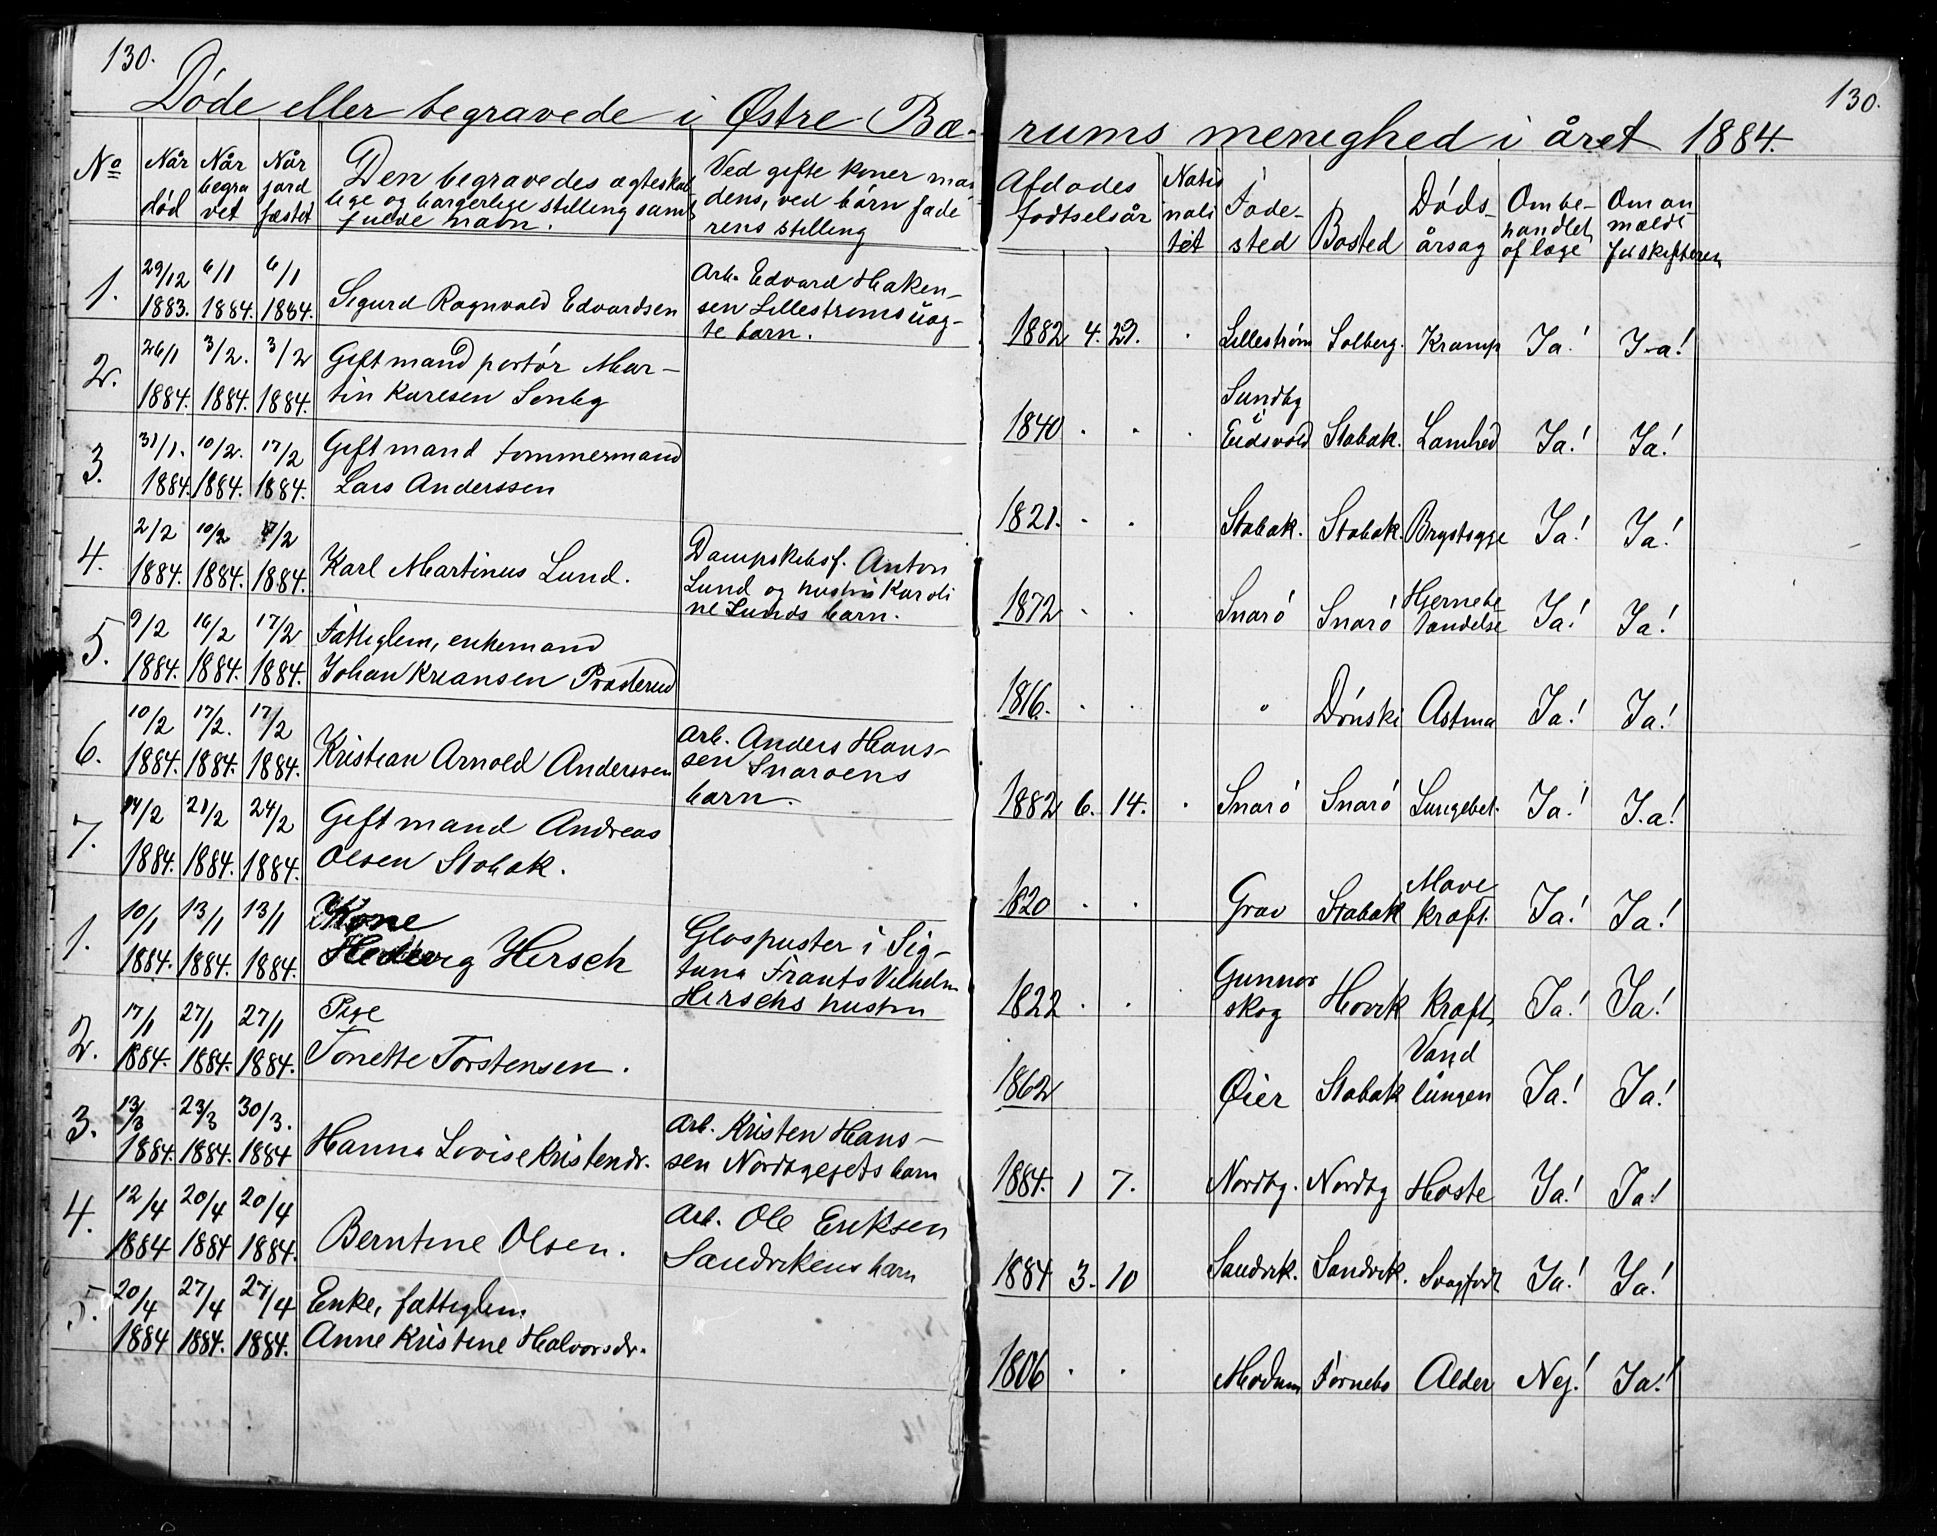 130.
130.
Døde eller begravede i Østre Bæ- rums menighed i året 1884.
No
Når død
Når begra vet
Når jord fæstet
Den begravedes ægteskab lige og borgerlige stilling samt fulde navn.
Ved gifte koner man dens, ved børn fade rens stilling
Afdødes fødtselsår
Natio nali tet
Føde- sted
Bosted
Døds- årsag
Om be- handlet af læge
Om an mældt
1. 29/12 1883. 6/1 1884. 6/1 1884. Sigurd Ragnvald Edvardsen Arb. Edvard Haken- sen Lillestrøms uæg- te barn. 1882 4. 29. Lillestrøm Solberg. Kramp Ja! Ja!
2. 26/1 1884. 3/2. 1884. 3/2 1884. Gift mand portør Mar- tin Karesen 1840 . . Sundby i Eidsvold Stabæk. Ja! Ja!
3. 31/1. 1884. 10/2. 1884. 17/2 1884. Gift mand tømmermand Lars Anderssen 1821. . . Stabæk. Stabæk. Brystsyge Ja! Ja!
4. 2/2 1884. 10/2 1884. 17/2 1884. Karl Martinus Lund. Dampskibsf. Anton Lund og hustru Karoli ne Lunds barn. 1872 . . Snarø Snarø Hjernebe tændelse Ja! Ja!
5. 9/2 1884. 16/2 1884. 17/2 1884. Fattiglem, enkemand Johan Kriansen Præsterud 1816. . . " Dønski Astma Ja! Ja!
6. 10/2 1884. 17/2. 1884. 17/2 1884. Kristian Arnold Anderssen Arb. Anders Hans- sen Snarøens barn. 1882 6. 14. Snarø Snarø Lungebet. Ja! Ja!
7. 14/2 1884. 21/2 1884. 24/2 1884. Gift mand Andreas Olsen Stabæk. 1820 . . Grav Stabæk Mave kræft. Ja! Ja!
1. 10/1 1884. 13/1 1884. 13/1 1884. Kone Hedevig Hirsch Glaspuster i Sig- tuna Frants Vilhelm Hirschs hustru 1822 . . Gunnar skog Høvik Kræft Ja! Ja!
2. 17/1 1884. 27/1 1884. 27/1 1884. Pige Tonette Torstensen. 1862 Øier Stabæk Vand i lungen Ja! Ja!
3. 13/3 1884. 23/3 1884. 30/3. 1884 Hanna Lovise Kristendr. Arb. Kristen Hans- sen Nordbyeiets barn 1884. 1 7. Nordby. Nordby Hoste Ja! Ja!
4. 12/4 1884 20/4 1884 20/4 1884. Berntine Olsen. Arb. Ole Eriksen Sandvikens barn 1884 3. 10 Sandvik. Sandvik. Svagfødt Ja! Ja!
5. 20/4 1884 27/4 1884. 27/4 1884. Enke, fattiglem Anne Kristine Halvorsdr. 1806 . . Modum Fornebo Alder Nej! Ja!